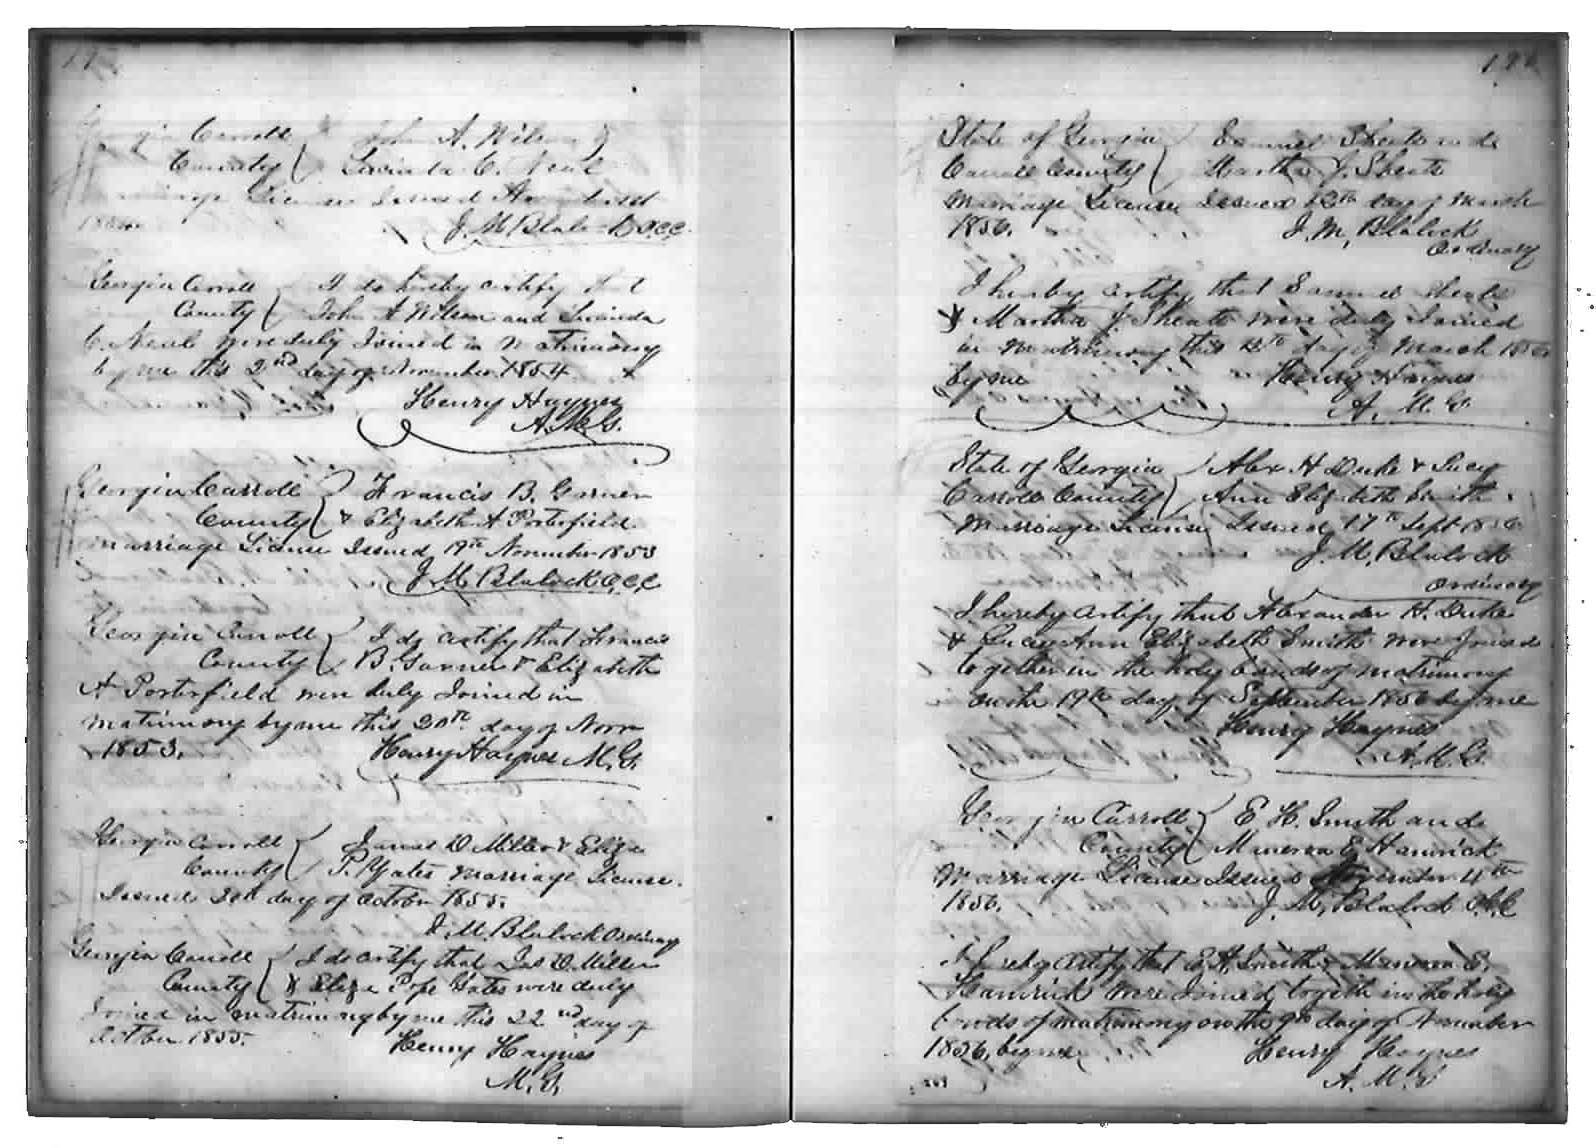 Georgia Carroll John A. Wilson &
County Lucinda C. Neal
Marriage License Issued
1854. J. M. Blalock D.C.C.
Georgia Carroll I do hereby certify that
County John A Wilson and Lucinda
C. Neal were duly Joined in matrimony
by me this 2nd day of November 1854.
Henry Haynes
A.M.G.
Georgia Carroll Francis B. Garner
County & Elizabeth A Porterfield
marriage License Issued 19th November 1853
J. M. Blalock C.C.C.
Georgia Carroll I do certify that Francis
County B. Garner & Elizabeth
A Porterfield were duly Joined in
matrimony by me this 20th day of Novr
1853. Henry Haynes M.G.
Georgia Carroll James D Miller & Eliza
County P. Yates marriage License
Issued 20th day of October 1855.
J. M. Blalock Ordinary
Georgia Carroll I do certify that Jas D. Miller
County & Eliza Pope Yates were duly
Joined in matrimony by me this 22nd day of
October 1855. Henry Haynes
M.G.
State of Georgia Samuel Sheats and
Carroll County Martha J. Sheats
Marriage License Issued 12th day of March
1856. J. M. Blalock
Ordinary
I hereby certify that Samuel Sheats
& Martha J. Sheats were duly Joined
in Matrimony this 12th day of March 1856
by me Henry Haynes
A. M. G.
State of Georgia Alex H Duke & Lucy
Carroll County Ann Elizabeth Smith
Marriage License Issued 17th Sept 1856
J. M. Blalock
Ordinary
I hereby certify that Alexander H. Duke
& Lucy Ann Elizabeth Smith were Joined
together in the holy bands of matrimony
on the 19th day of September 1856 by me
Henry Haynes
A.M.G.
Georgia Carroll E H. Smith and
County Manerva E Hamrick
Marriage License Issued November 4th
1856. J. M. Blalock
I hereby certify that E H. Smith & Manerva E.
Hamrick were Joined togeth in the holy
bonds of matrimony on the 9th day of November
1856, by me Henry Haynes
A. M. G